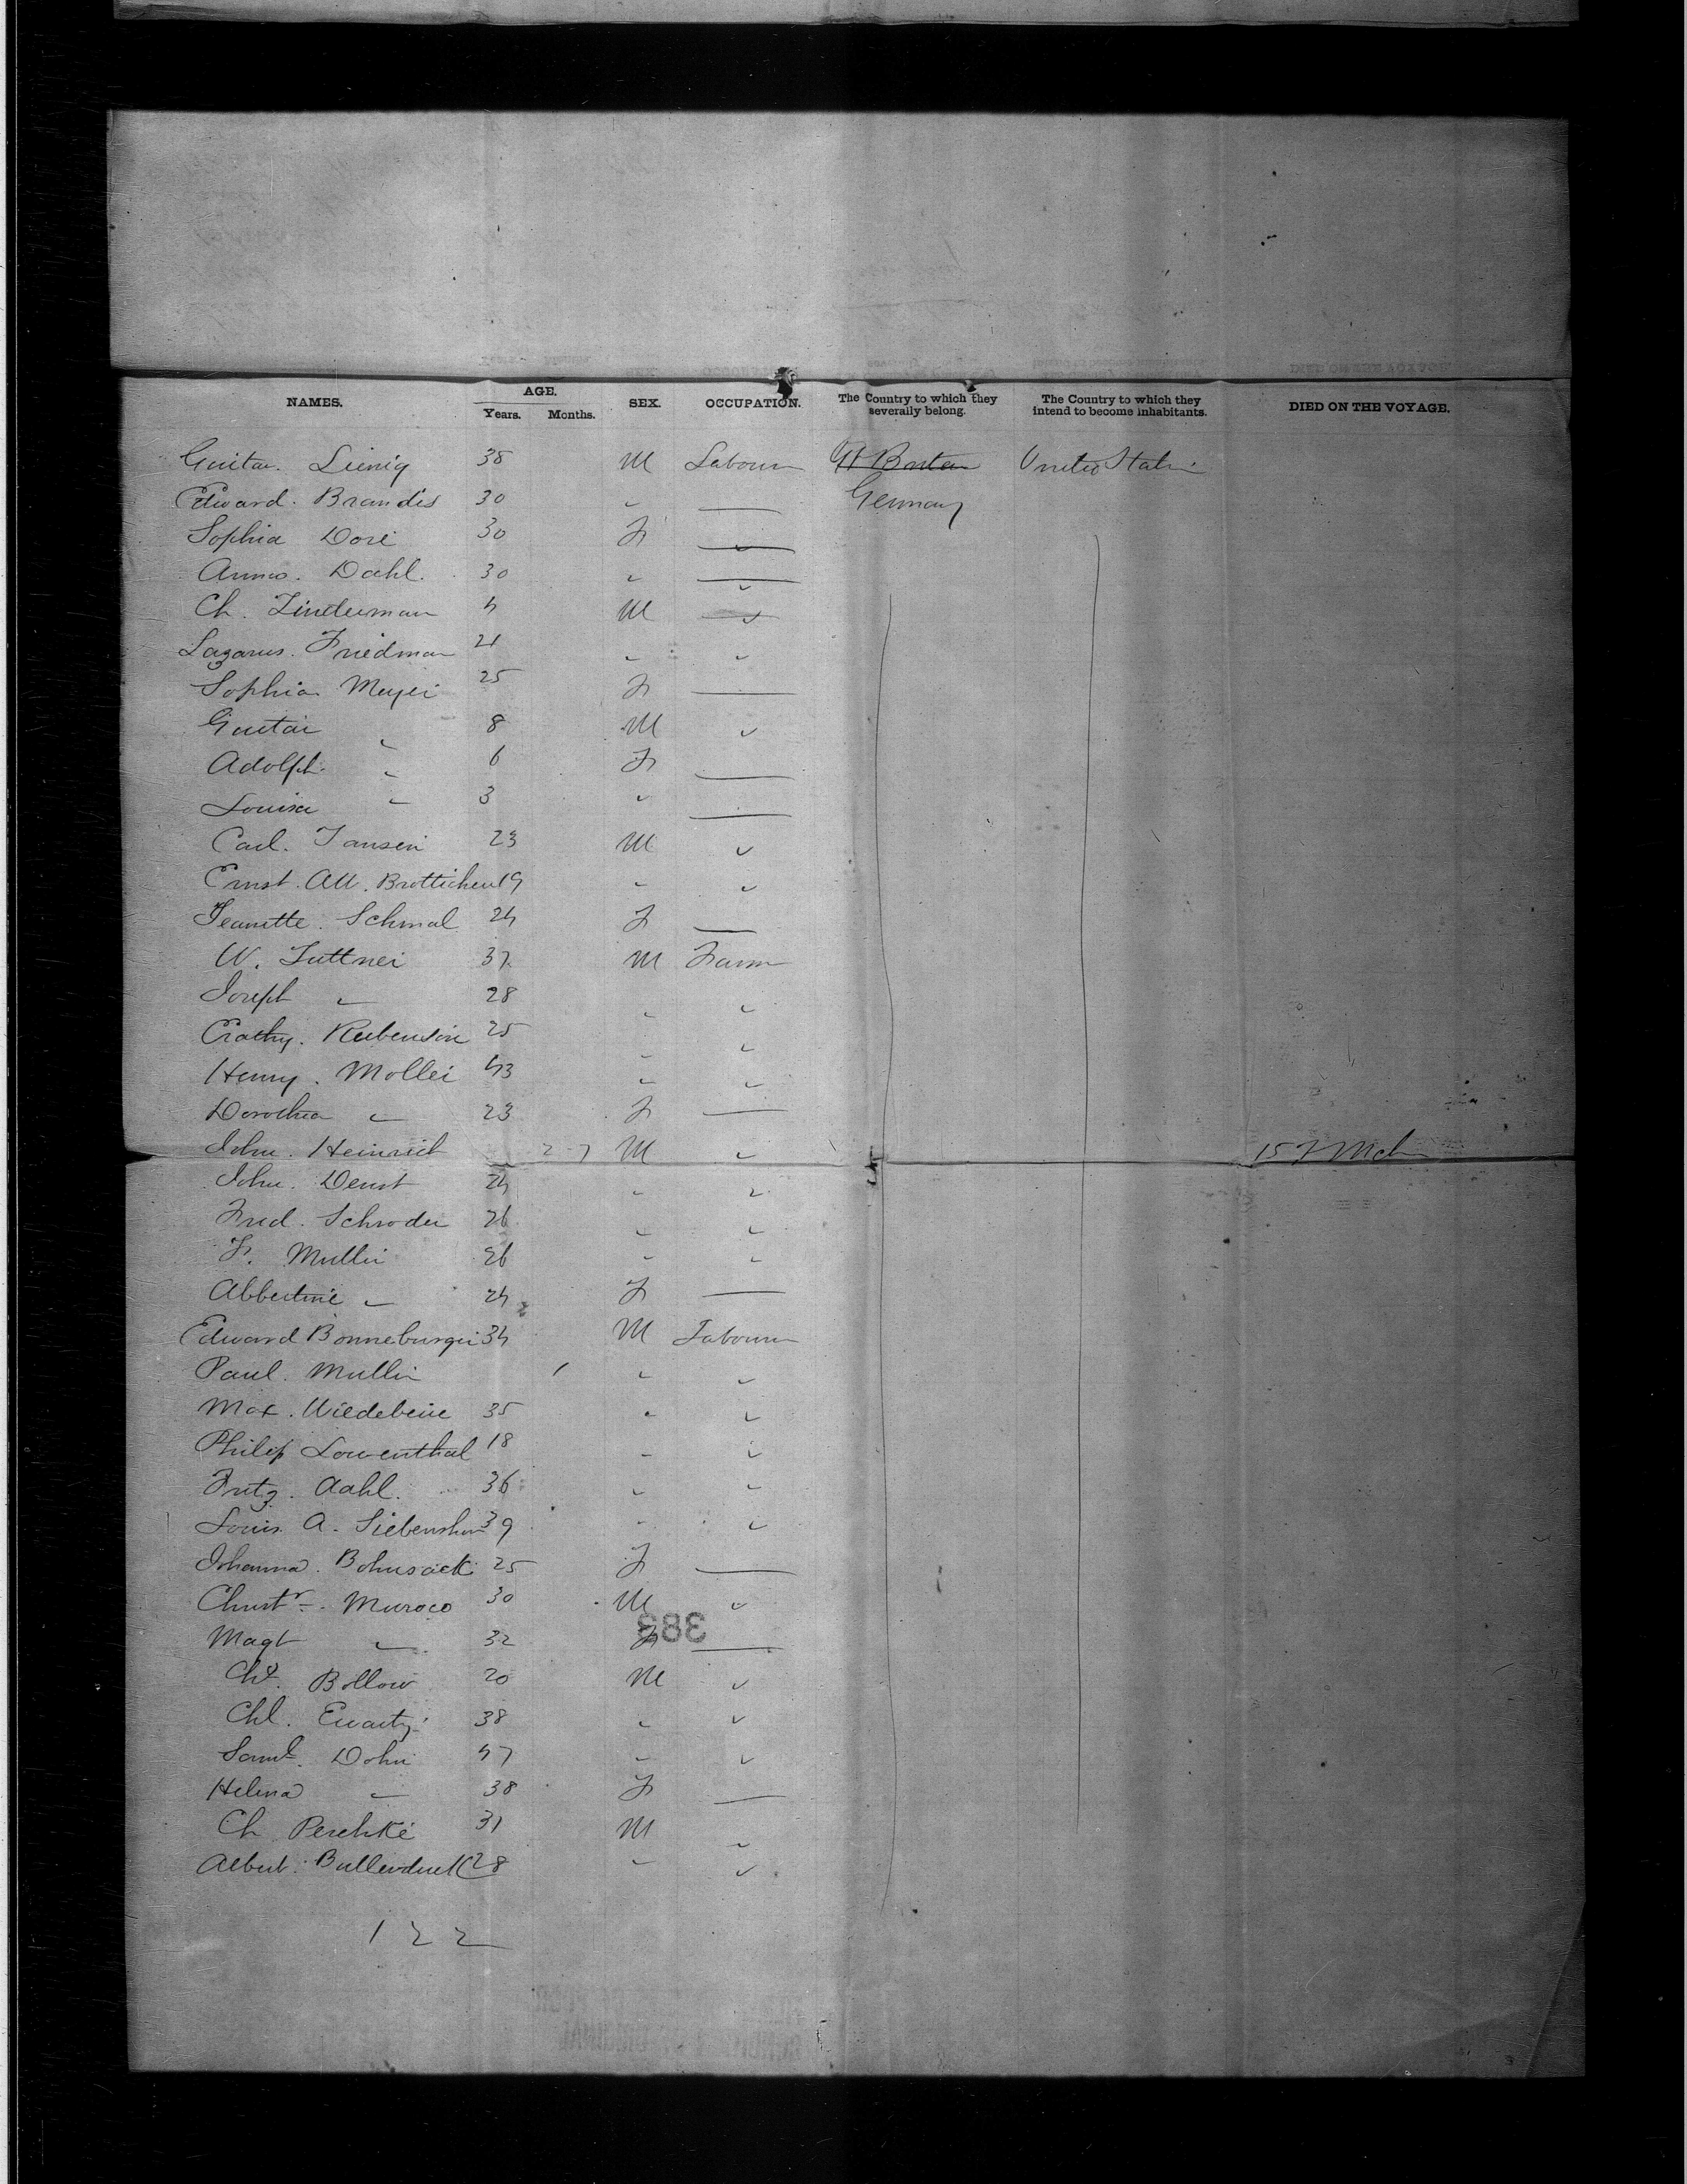 NAMES. AGE. Years. Months. SEX. OCCUPATION. The Country to which they severally belong. The Country to which they intend to become inhabitants. DIED ON THE VOYAGE.
Gustav. Lienig 38 M Labourer Gt Britain United States
Edward. Brandis 30 " — Germany
Sophia Dore 30 F —
Anna. Dahl. 30 " —
Ch. Lindeman 4 M "
Lazarus. Friedman 21 " "
Sophia Meyer 25 F —
Gustav " 8 M "
Adolph " 6 F —
Louisa " 3 " —
Carl. Jansen 23 M "
Ernst. 19 " "
Jeanette. Schmal 24 F —
W. Luttner 37 M Farmer
Joseph " 28 " "
Rubensin 25 " "
Henry. Moller 43 " "
Dorothea " 23 F —
John. Heinrich 2 7 M " 15 Mch
John. Denst 24 " "
Fred. Schroder 26 " "
F. Muller 26 " "
Abbertine " 24 F —
Edward Bonneburger 34 M Labourer
Paul. Muller 1 " "
Max. Wiedebeine 35 " "
Philip Lowenthal 18 " "
Fritz. Aahl. 36 " "
Louis. A. 39 " "
Johanna. Bohnsack 25 F —
Christr. Muroco 30 M "
383
Magt " 32 F —
Cht. Bollow 20 M "
Chl. 38 " "
Saml. Dohn 47 " "
Helena " 38 F —
Ch Peschke 31 M "
Albert. 28 " "
122